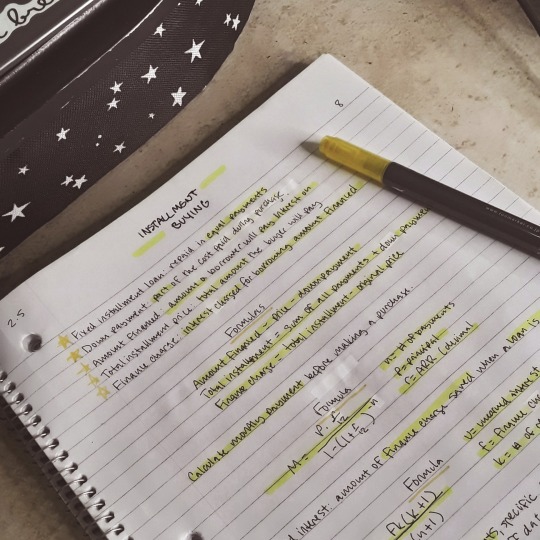 8
INSTALLMENT
BUYING
2.5
Fixed installment loan: repaid in equal payments
Down payment: part of the cost paid during purchase
Amount Financed: amount borrower will pay interest on
Total installment price: total amount the buyer will pay
Finance charge: interest charged for borrowing amount financed
Formulas
Amount Financed = price - down payment
Total installment = sum of all payments + down payment
Finance charge = total installment - original price
Calculate monthly payment before making a purchase.
Formula
M = P · r/12
1 - (1 + r/12)^-n
n = # of payments
P = principal
r = APR (decimal
interest: amount of finance charge saved when a loan is
Formula
Fk(k+1)
(n+1)
U = unearned interest
f = finance char
k = # of
specific